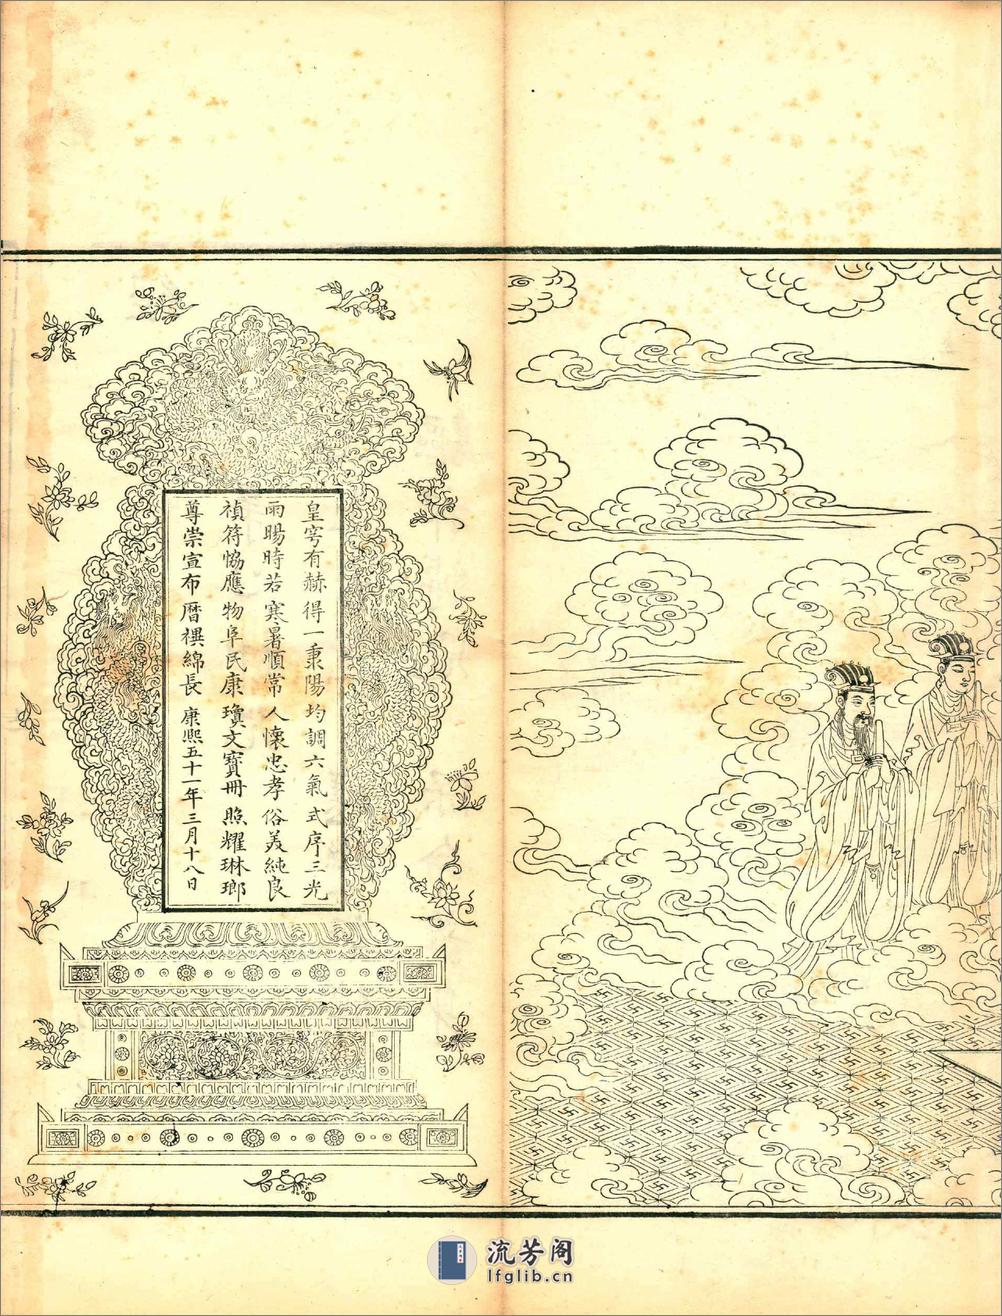 皇穹有赫得一秉陽均調六氣式序三光
雨暘時若寒暑順常人懷忠孝俗美純良
禎符恊應物阜民康瓊文寶冊照耀琳瑯
尊崇宣布曆禩綿長康熙五十一年三月十八日
流芳阁
lfglib.cn